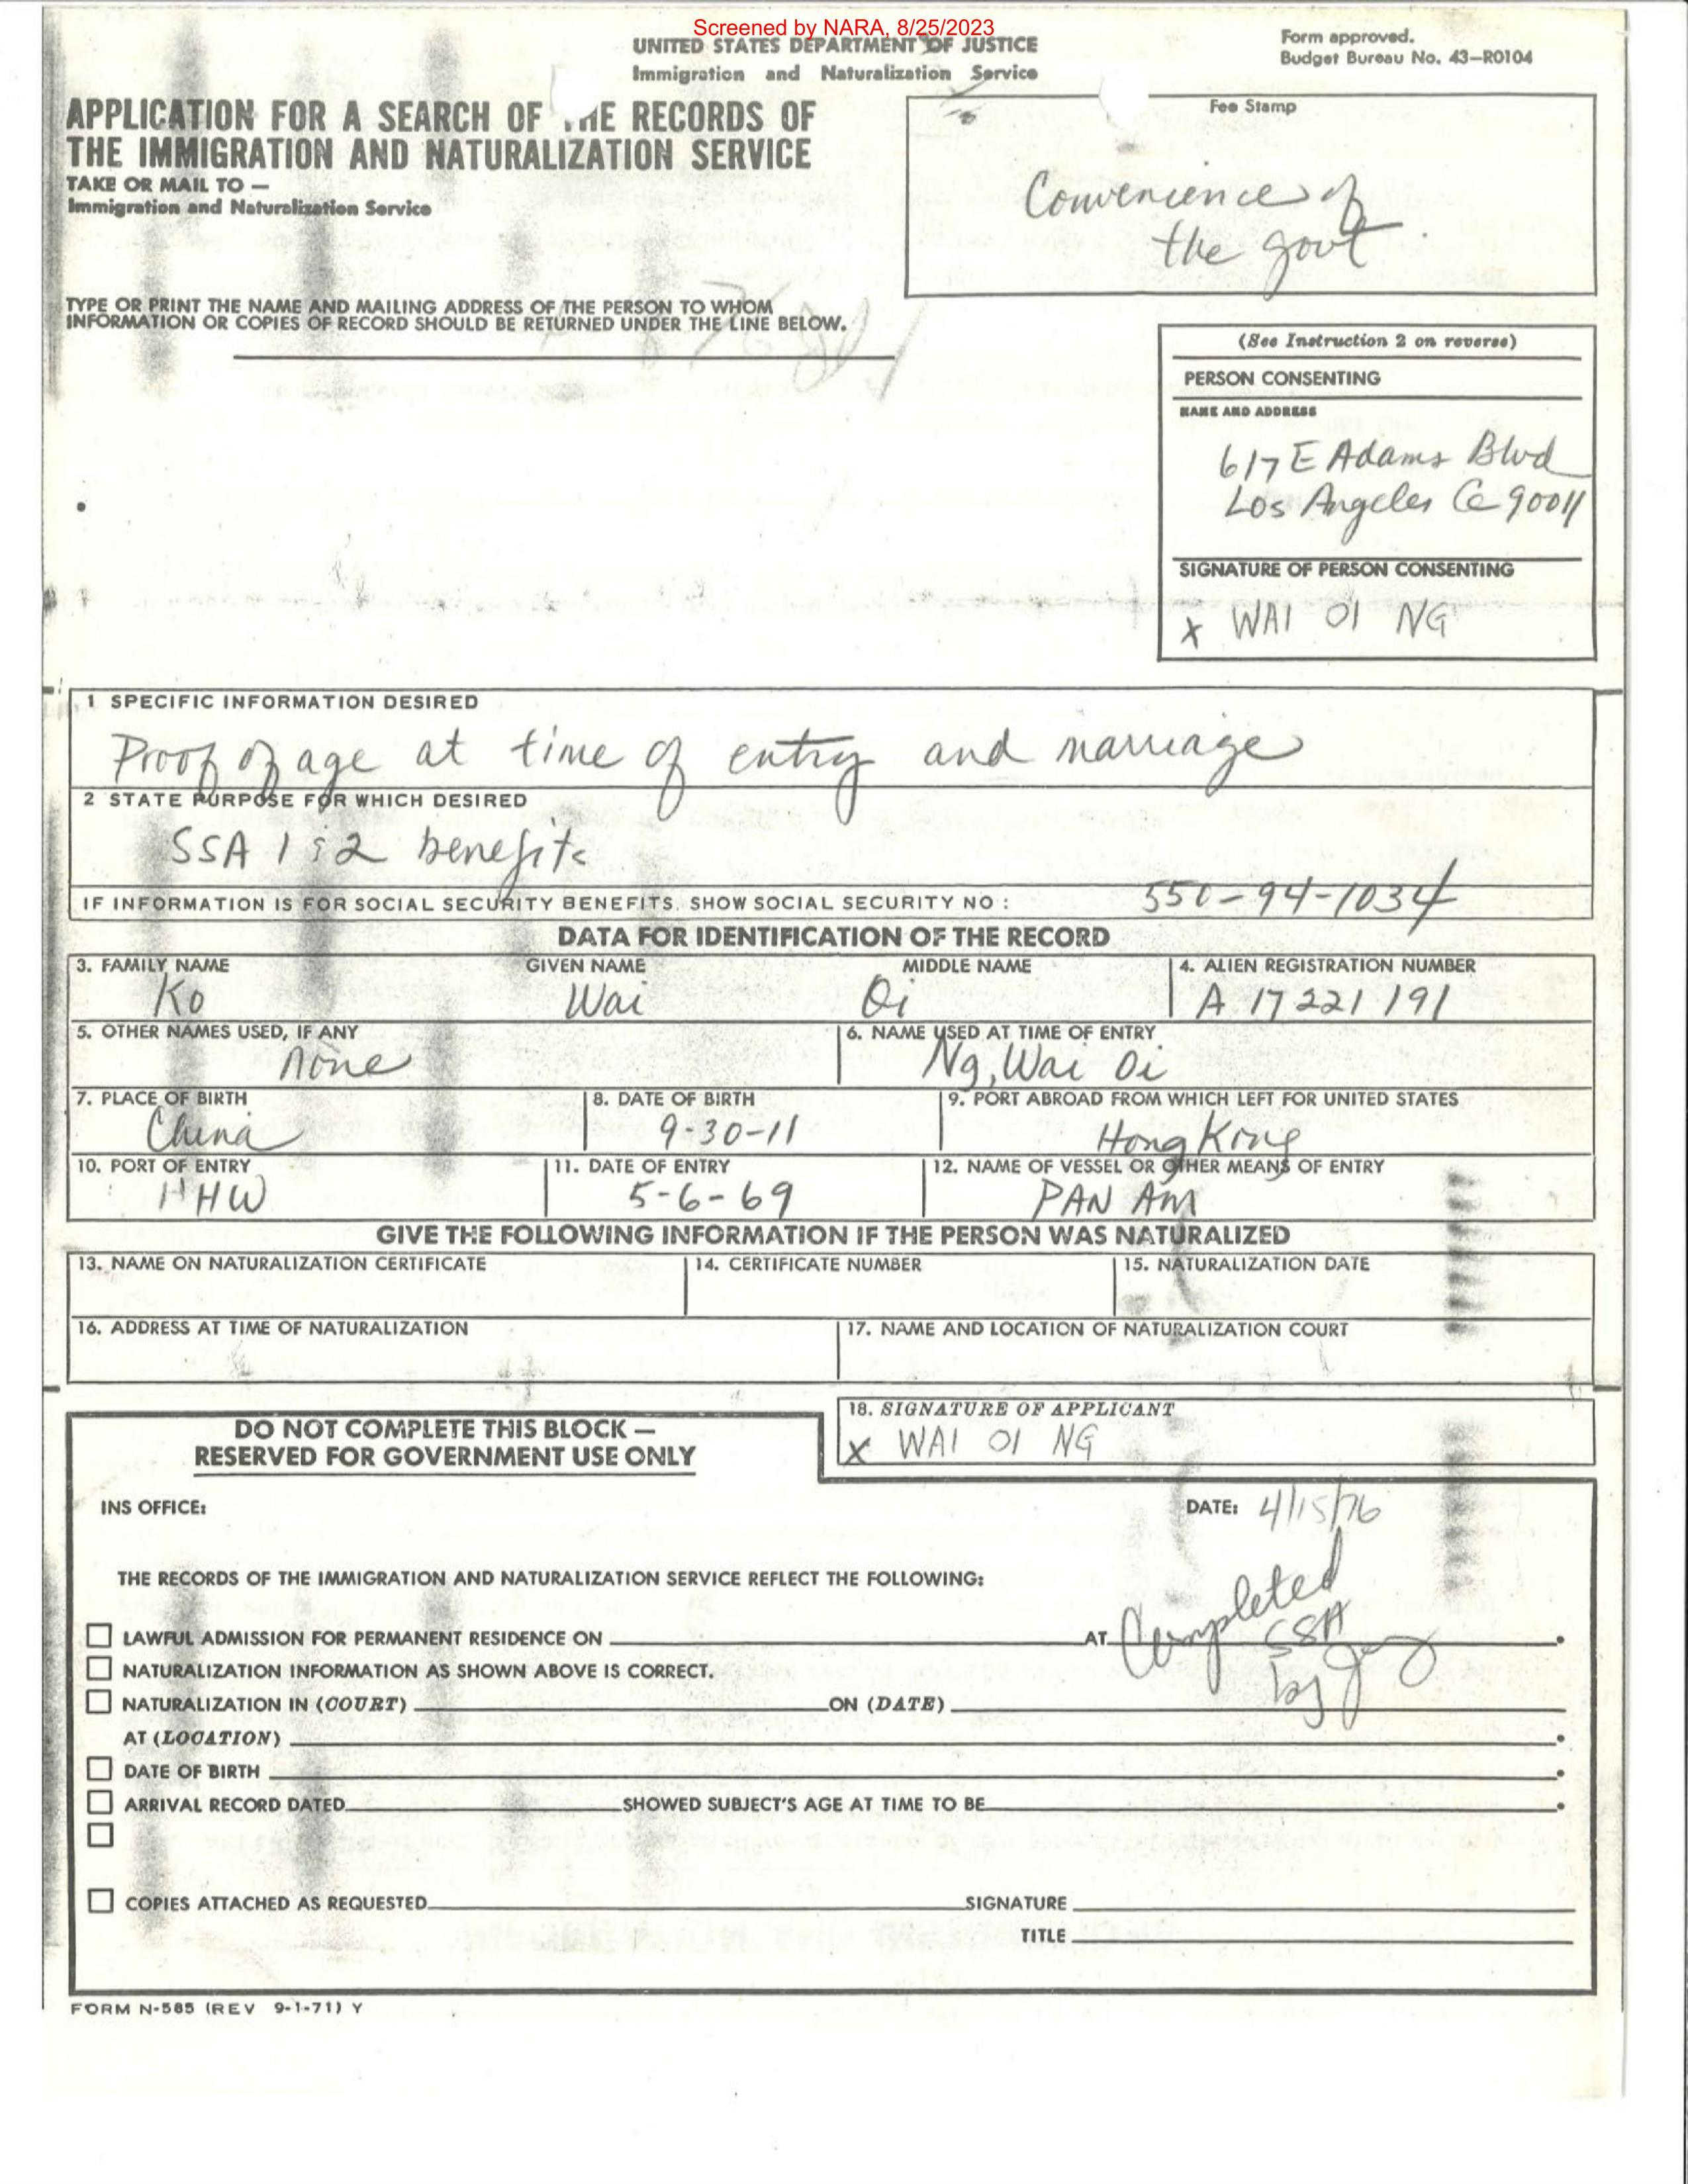 Screened by NARA, 8/25/2023
UNITED STATES DEPARTMENT OF JUSTICE
Immigration and Naturalization Service
Form approved.
Budget Bureau No. 43-R0104
APPLICATION FOR A SEARCH OF THE RECORDS OF
THE IMMIGRATION AND NATURALIZATION SERVICE
TAKE OR MAIL TO —
Immigration and Naturalization Service
Fee Stamp
Convenience of
the govt.
TYPE OR PRINT THE NAME AND MAILING ADDRESS OF THE PERSON TO WHOM
INFORMATION OR COPIES OF RECORD SHOULD BE RETURNED UNDER THE LINE BELOW.
(See Instruction 2 on reverse)
PERSON CONSENTING
NAME AND ADDRESS
617 E Adams Blvd
Los Angeles Ca 90011
SIGNATURE OF PERSON CONSENTING
X WAI OI NG
1 SPECIFIC INFORMATION DESIRED
Proof of age at time of entry and marriage
2 STATE PURPOSE FOR WHICH DESIRED
SSA 1 & 2 benefits
IF INFORMATION IS FOR SOCIAL SECURITY BENEFITS, SHOW SOCIAL SECURITY NO: 550-94-1034
DATA FOR IDENTIFICATION OF THE RECORD
3. FAMILY NAME GIVEN NAME MIDDLE NAME 4. ALIEN REGISTRATION NUMBER
Ko Wai Oi A 17 221 191
5. OTHER NAMES USED, IF ANY 6. NAME USED AT TIME OF ENTRY
None Ng, Wai Oi
7. PLACE OF BIRTH 8. DATE OF BIRTH 9. PORT ABROAD FROM WHICH LEFT FOR UNITED STATES
China 9-30-11 Hong Kong
10. PORT OF ENTRY 11. DATE OF ENTRY 12. NAME OF VESSEL OR OTHER MEANS OF ENTRY
HHW 5-6-69 PAN AM
GIVE THE FOLLOWING INFORMATION IF THE PERSON WAS NATURALIZED
13. NAME ON NATURALIZATION CERTIFICATE 14. CERTIFICATE NUMBER 15. NATURALIZATION DATE
16. ADDRESS AT TIME OF NATURALIZATION 17. NAME AND LOCATION OF NATURALIZATION COURT
DO NOT COMPLETE THIS BLOCK —
RESERVED FOR GOVERNMENT USE ONLY
18. SIGNATURE OF APPLICANT
X WAI OI NG
INS OFFICE: DATE: 4/15/76
THE RECORDS OF THE IMMIGRATION AND NATURALIZATION SERVICE REFLECT THE FOLLOWING:
Completed
SSA
by
LAWFUL ADMISSION FOR PERMANENT RESIDENCE ON AT
NATURALIZATION INFORMATION AS SHOWN ABOVE IS CORRECT.
NATURALIZATION IN (COURT) ON (DATE)
AT (LOCATION)
DATE OF BIRTH
ARRIVAL RECORD DATED SHOWED SUBJECT'S AGE AT TIME TO BE
COPIES ATTACHED AS REQUESTED SIGNATURE
TITLE
FORM N-585 (REV 9-1-71) Y